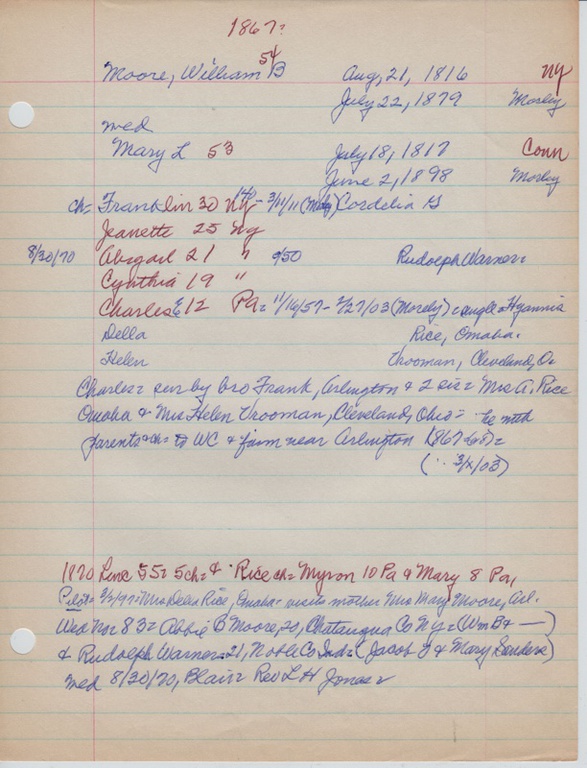 1867?
54
Moore, William B Aug, 21, 1816 NY
July 22, 1879 Morley
wed
Mary L 53 July 18, 1817 Conn
June 2, 1898 Morley
ch= Franklin 30 NY - 3/11/11 (Morley) Cordelia G
Jeanette 25 Ny
8/30/70 Abigail 21 " 9/50 Rudolph Warner=
Cynthia 19 "
Charles E 12 Pa= 11/16/57- 2/27/03 (Morely) = Hyannis
Della Rice, Omaha=
Helen Vrooman, Cleveland, O=
Charles= sur by bro Frank, Arlington & 2 sis= Mrs A. Rice
Omaha & Mrs Helen Vrooman, Cleveland, Ohio= he with
parents & ch= to WC & farm near Arlington 1867
3/x/03)
1870 Line 55= 5 ch= & Rice ch= Myron 10 Pa & Mary 8 Pa,
Pilot= Mrs Della Rice, Omaha= visits mother Mrs Mary Moore, Arl.
Wed Nos 83= Abbie B Moore, 20, Chatauqua Co Ny= (Wm B & —)
& Rudolph Warner= 21, Noble Co Ind= (Jacob & Mary Sanders)
wed 8/30/70, Blair= Rev L H Jones=